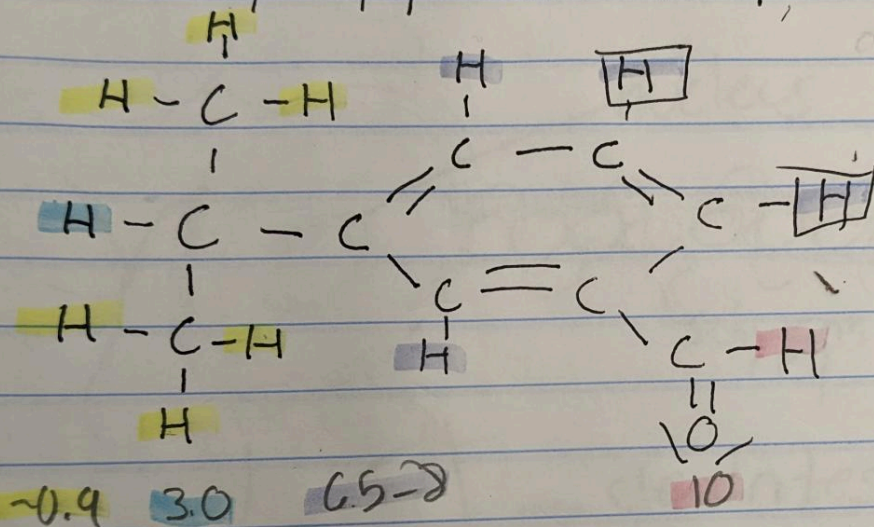 H
H - C - H
H H
C - C
H - C - C C - H
C = C
H - C - H H C - H
H O
~0.9 3.0 6.5-8 10